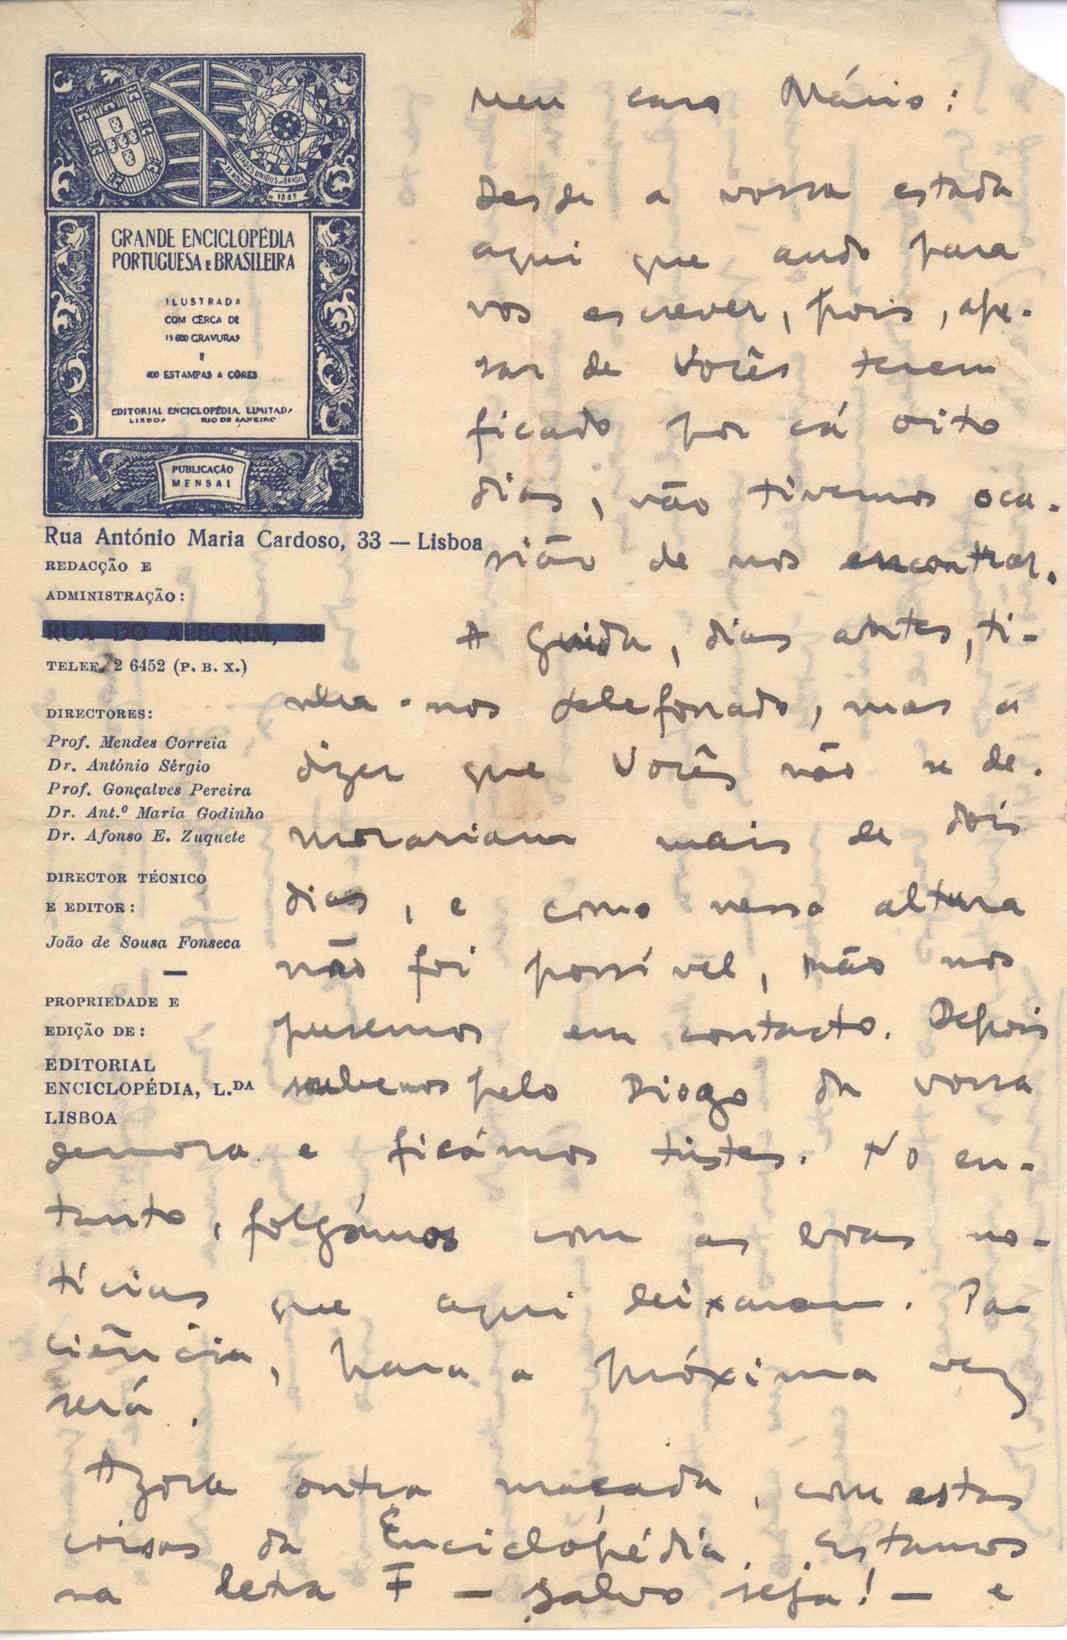 GRANDE ENCICLOPÉDIA
PORTUGUESA E BRASILEIRA
ILUSTRADA
COM CÊRCA DE
15000 GRAVURAS
E
400 ESTAMPAS A CÔRES
EDITORIAL ENCICLOPÉDIA, LIMITADA
LISBOA RIO DE JANEIRO
PUBLICAÇÃO
MENSAL
Rua António Maria Cardoso, 33 — Lisboa
REDACÇÃO E
ADMINISTRAÇÃO:
RUA DO ALECRIM, 38
TELEF. 2 6452 (P. B. X.)
DIRECTORES:
Prof. Mendes Correia
Dr. António Sérgio
Prof. Gonçalves Pereira
Dr. Ant.º Maria Godinho
Dr. Afonso E. Zuquete
DIRECTOR TÉCNICO
E EDITOR:
João de Sousa Fonseca
—
PROPRIEDADE E
EDIÇÃO DE:
EDITORIAL
ENCICLOPÉDIA, L.DA
LISBOA
Meu caro Mário:
Desde a vossa estada
aqui que ando para
vos escrever, pois, ape-
sar de Vocês terem
ficado por cá oito
dias, não tivemos oca-
sião de nos encontrar.
A Guida, dias antes, ti-
nha-nos telefonado, mas a
dizer que Vocês não se de-
morariam mais de dois
dias, e como nessa altura
não foi possível, não nos
pusemos em contacto. Depois
soubemos pelo Diogo da vossa
demora e ficámos tristes. No en-
tanto, folgámos com as boas no-
tícias que aqui deixaram. Pa
ciência, para a próxima vez
será.
Agora outra maçada, com estas
coisas da Enciclopédia. Estamos
na letra F — salvo seja! — e